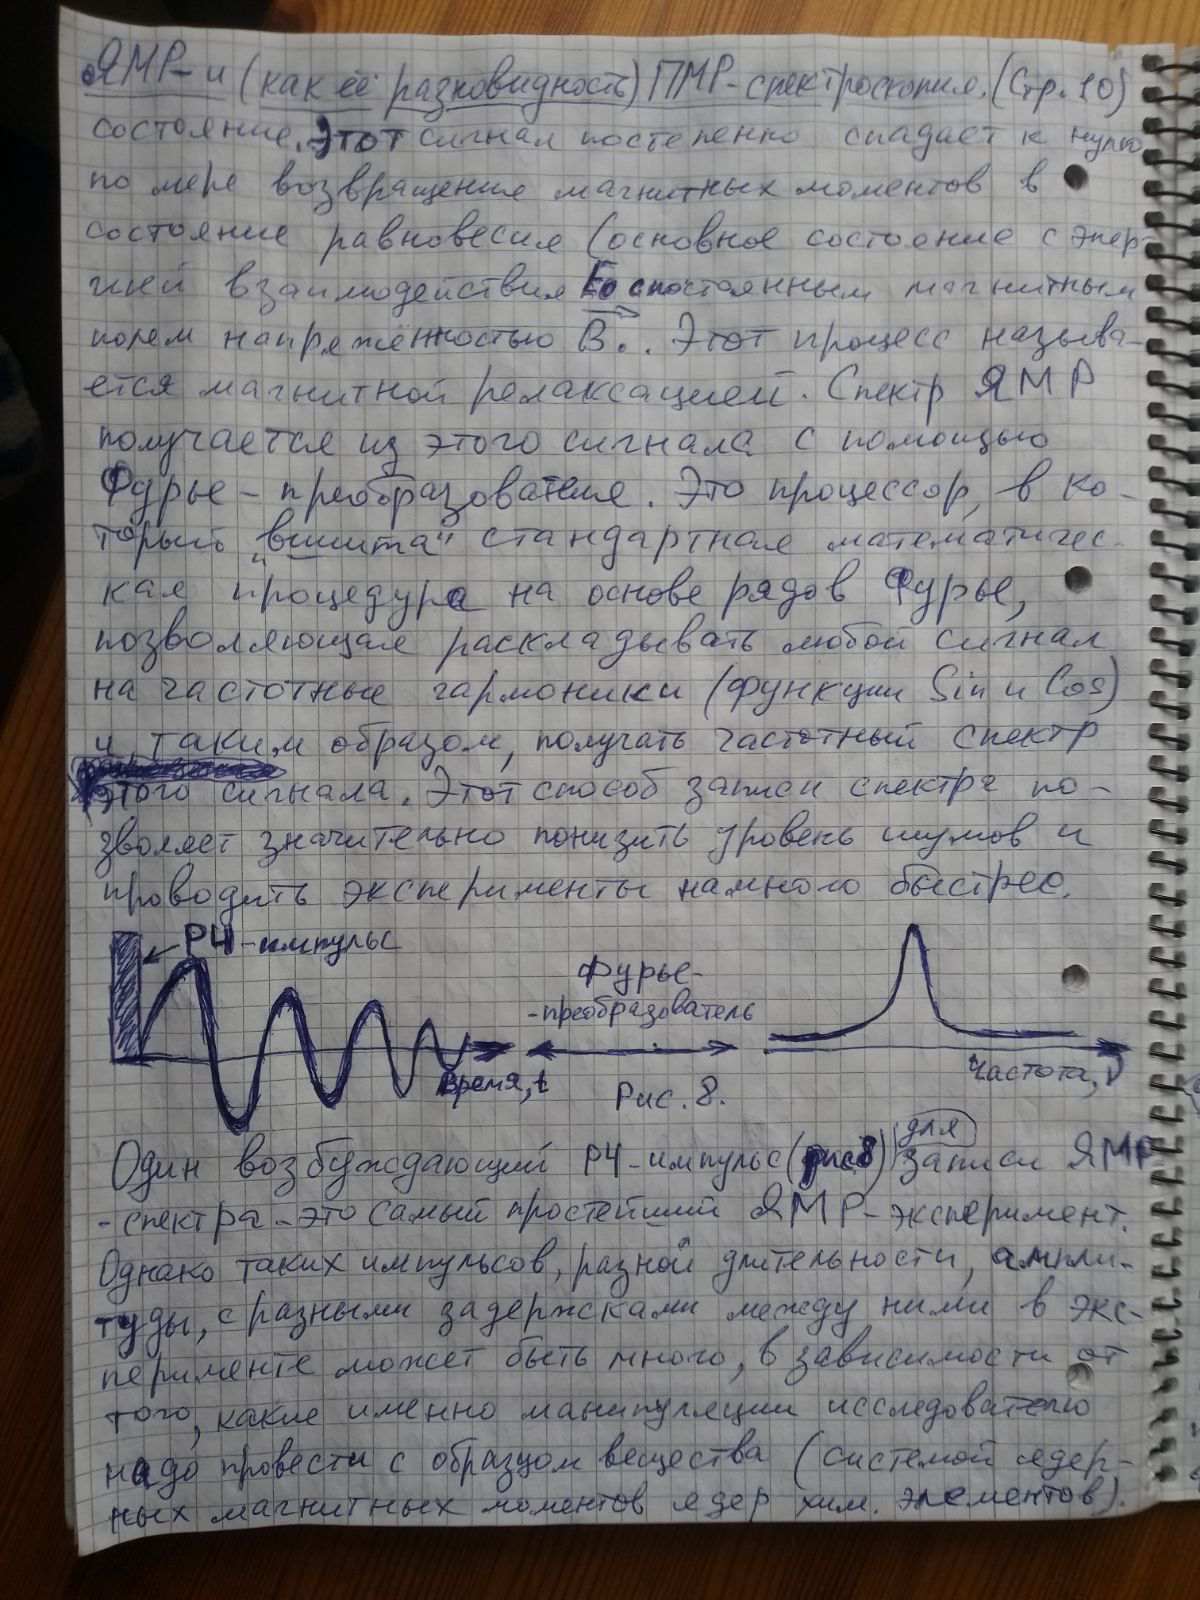 ЯМР-и (как её разновидность) ПМР-спектроскопия. (Стр. 10)
состояние. Этот сигнал постепенно спадает к нулю
по мере возвращения магнитных моментов в
состояние равновесия (основное состояние с энер-
гией взаимодействия E₀ с постоянным магнитным
полем напряжённостью B₀. Этот процесс называ-
ется магнитной релаксацией. Спектр ЯМР
получается из этого сигнала с помощью
Фурье-преобразователя. Это процессор, в ко-
торый „вшита" стандартная математичес-
кая процедура на основе рядов Фурье,
позволяющая раскладывать любой сигнал
на частотные гармоники (функции Sin и Cos)
и, таким образом, получать частотный спектр
этого сигнала. Этот способ записи спектра по-
зволяет значительно понизить уровень шумов и
проводить эксперименты намного быстрее.
РЧ-импульс
Фурье-
-преобразователь
Время, t
Рис. 8.
Частота, ν
Один возбуждающий РЧ-импульс (рис 8) для записи ЯМР
-спектра-это самый простейший ЯМР-эксперимент.
Однако таких импульсов, разной длительности, ампли-
туды, с разными задержками между ними в экс-
перименте может быть много, в зависимости от
того, какие именно манипуляции исследователю
надо провести с образцом вещества (системой ядер-
ных магнитных моментов ядер хим. элементов).